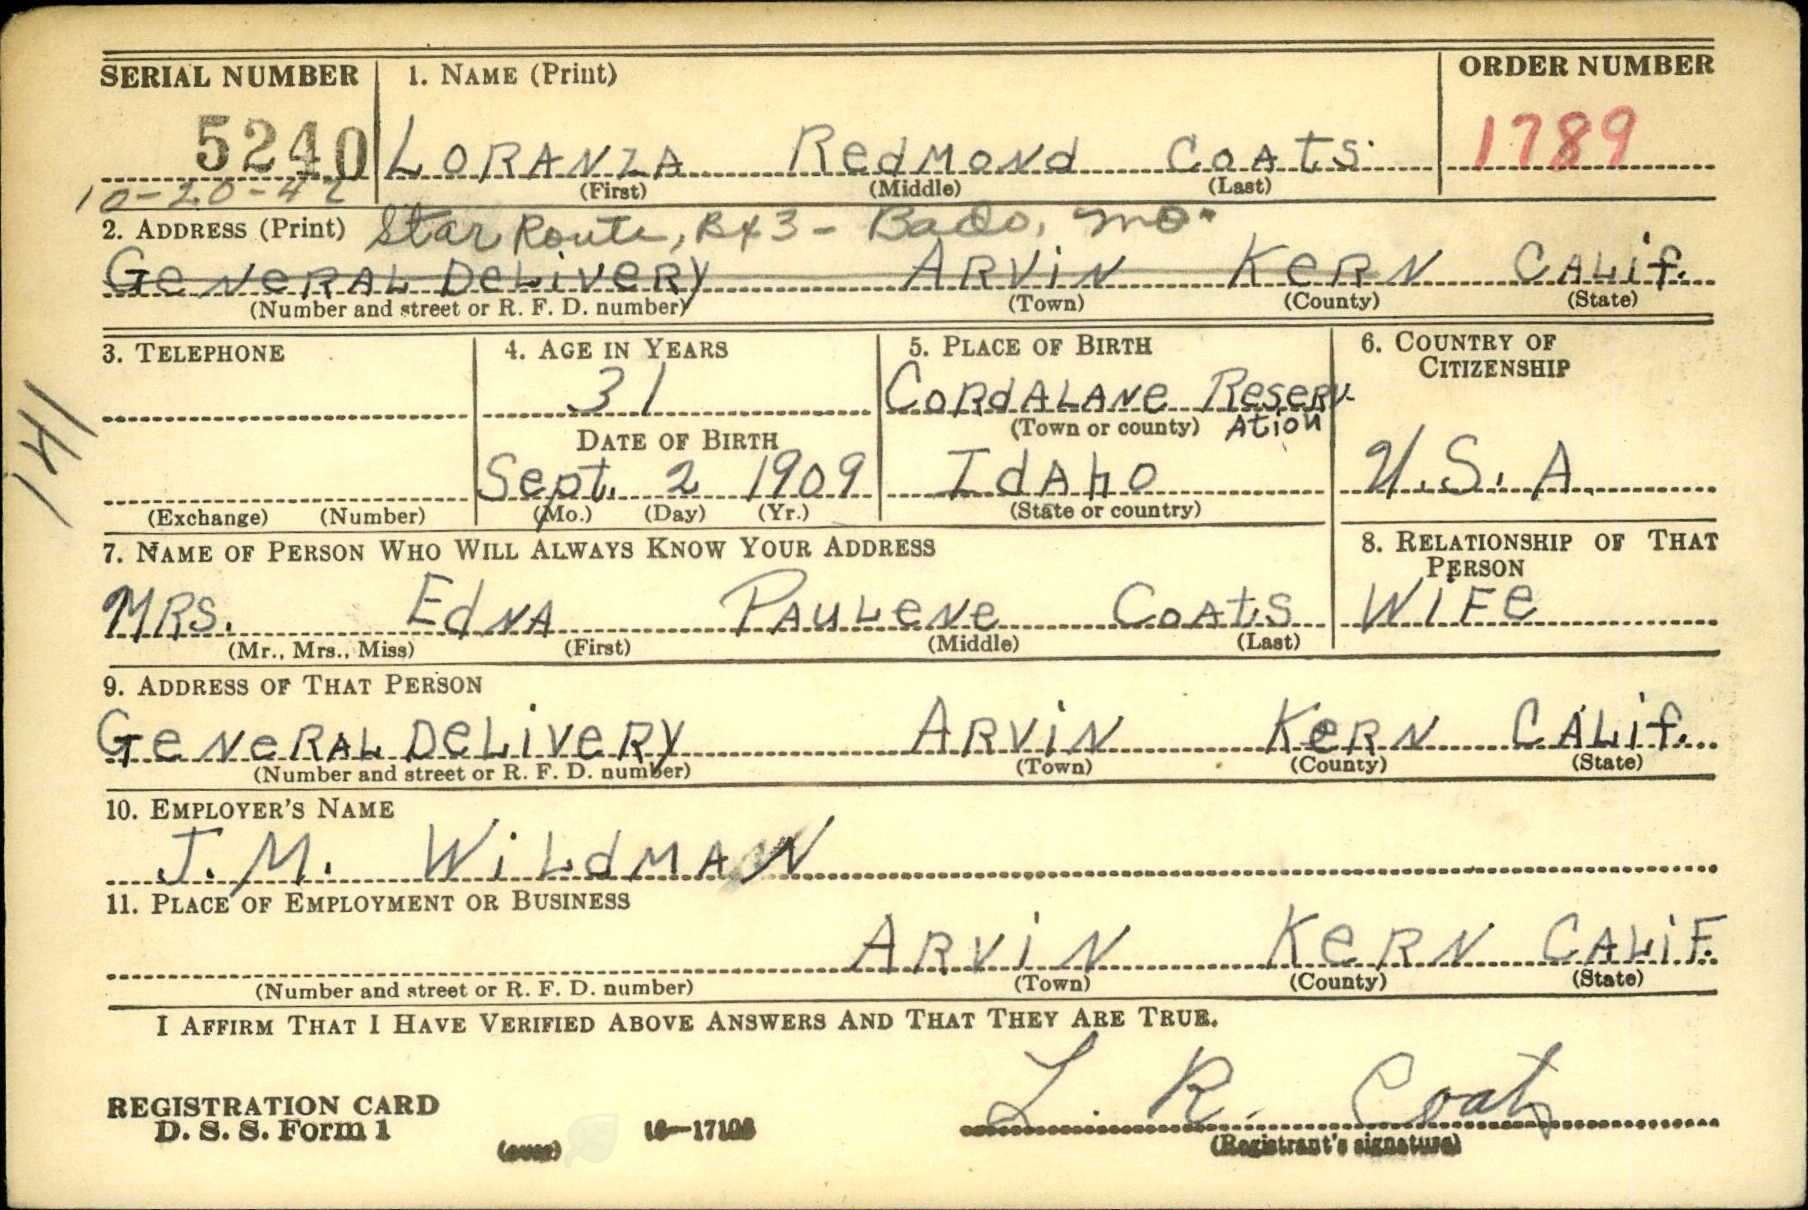 SERIAL NUMBER 1. NAME (Print) ORDER NUMBER
5240 LORANZA Redmond COAtS 1789
(First) (Middle) (Last)
10-20-42
2. ADDRESS (Print) Star Route, Bx 3 - Bado, Mo.
GeNeRAL DeLiveRy ARViN KeRN CALif.
(Number and street or R. F. D. number) (Town) (County) (State)
3. TELEPHONE 4. AGE IN YEARS 5. PLACE OF BIRTH 6. COUNTRY OF CITIZENSHIP
31 CORdALANe ReseRv-
(Town or county) AtioN
DATE OF BIRTH
Sept. 2 1909 IdAho U.S.A.
(Exchange) (Number) (Mo.) (Day) (Yr.) (State or country)
141
7. NAME OF PERSON WHO WILL ALWAYS KNOW YOUR ADDRESS 8. RELATIONSHIP OF THAT PERSON
MRS. EdNA PAULeNe COAtS WiFe
(Mr., Mrs., Miss) (First) (Middle) (Last)
9. ADDRESS OF THAT PERSON
GeNeRAL DeLiveRy ARViN KeRN CALif.
(Number and street or R. F. D. number) (Town) (County) (State)
10. EMPLOYER'S NAME
J. M. WiLdMAN
11. PLACE OF EMPLOYMENT OR BUSINESS
ARViN KeRN CALiF.
(Number and street or R. F. D. number) (Town) (County) (State)
I AFFIRM THAT I HAVE VERIFIED ABOVE ANSWERS AND THAT THEY ARE TRUE.
L. R. Coats
REGISTRATION CARD
D. S. S. Form 1 (over) 16-17106 (Registrant's signature)